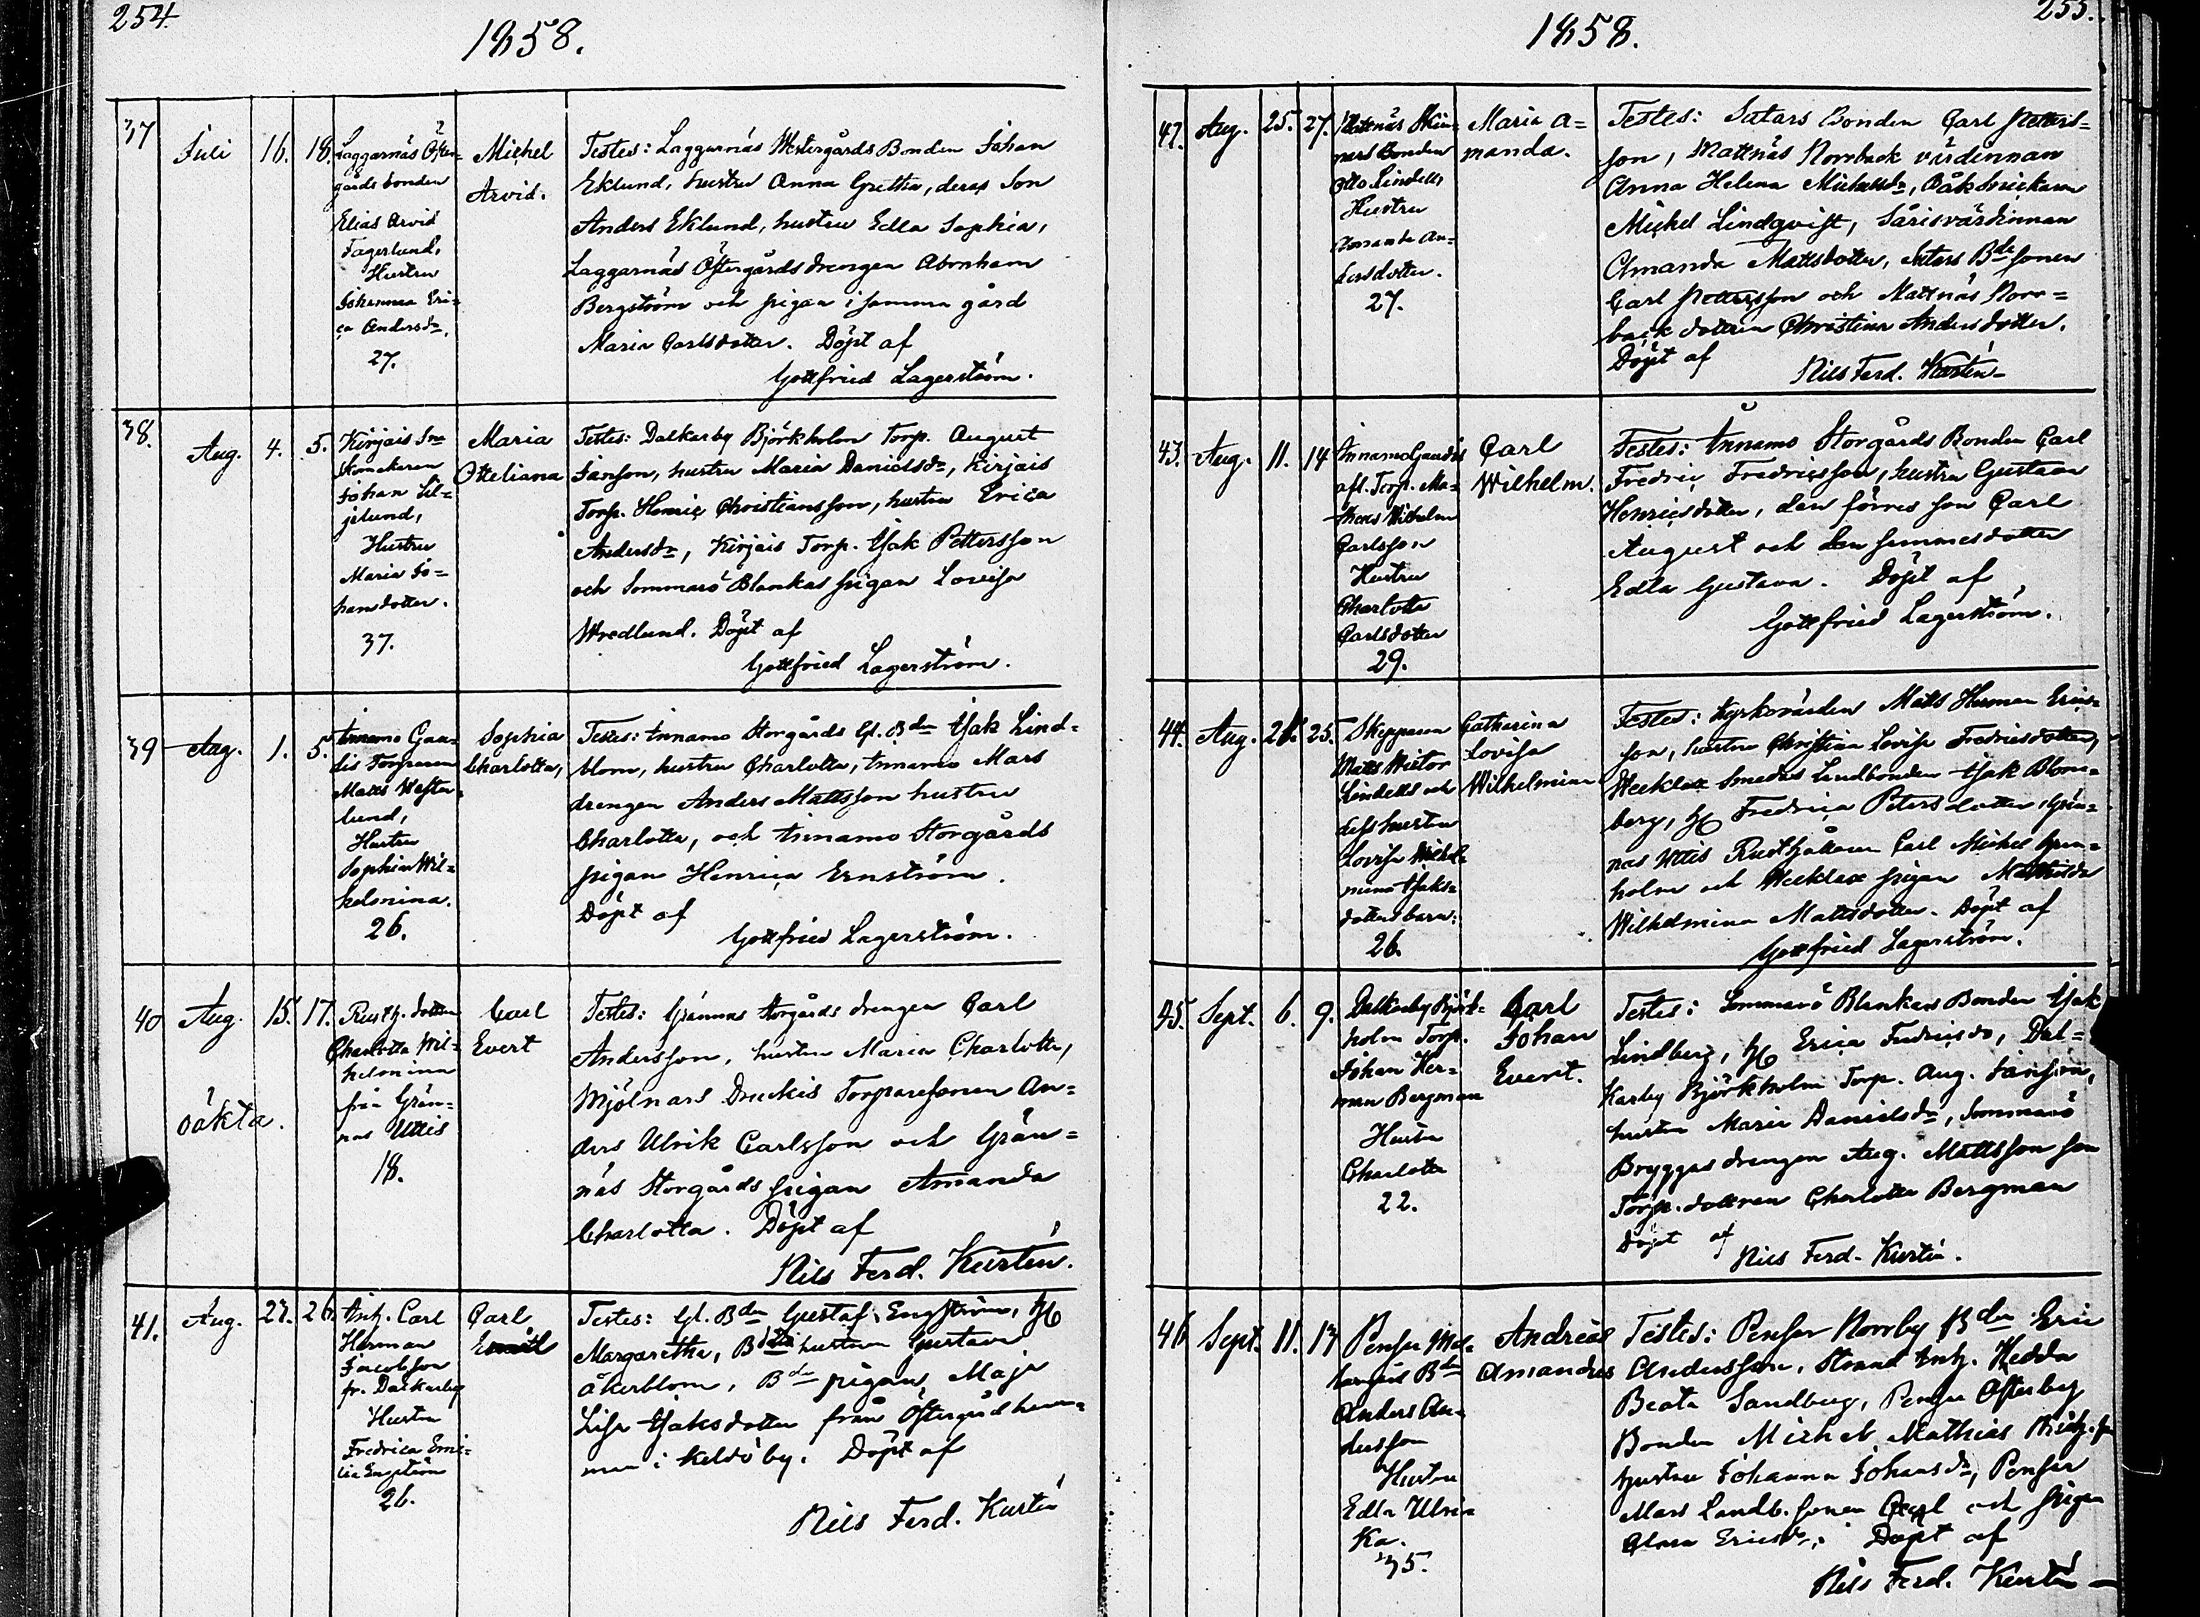 254.
1858.
37
Juli
16.
18.
Laggarnäs Öster-
gårds bonden
Elias Arvid
Fagerlund,
Hustru
Johanna Eri-
ca Andersdr.
27.
Michel
Arvid.
Testes: Laggarnäs Westergårds Bonden Johan
Eklund, hustru Anna Gretha, deras Son
Anders Eklund, hustru Edla Sophia,
Laggarnäs Östergårds drengen Abraham
Bergström och pigan i samma gård
Maria Carlsdotter. Döpt af
Gottfried Lagerström.
38.
Aug.
4.
5.
Kirjais
Skomakaren
Johan Lil-
jelund,
Hustru
Maria Jo-
hansdotter.
37.
Maria
Otteliana
Testes: Dalkarby Björkholm Torp. August
Janson, hustru Maria Danielsdr, Kirjais
Torp. Henric Christiansson, hustru Erica
Andersdr, Kirjais Torp. Isak Pettersson
och Sommarö Blankas pigan Lovisa
Wredlund. Döpt af
Gottfried Lagerström.
39
Aug.
1.
5.
Innamo Gau-
dis Torparen
Matts Wester-
lund,
Hustru
Sophia Wil-
helmina.
26.
Sophia
Charlotta,
Testes: Innamo Storgårds Gl. Bdn Isak Lind-
blom, hustru Charlotta, Innamo Mars
drengen Anders Mattsson hustru
Charlotta, och Innamo Storgårds
pigan Henrica Ernström.
Döpt af
Gottfried Lagerström.
40
Aug.
15.
17.
oäkta.
Rusth. dottern
Charlotta Wil-
helmina
från Grän-
nas Uttis
18.
Carl
Evert
Testes: Grännas Storgårds drengen Carl
Andersson, hustru Maria Charlotta,
Mjölnars Druckis Torparesonen An-
ders Ulrik Carlsson och Grän-
näs Storgårds pigan Amanda
Charlotta. Döpt af
Nils Ferd. Kurtén.
41.
Aug.
23.
26.
Inh. Carl
Herman
Jacobsson
fr. Dalkarby
Hustru
Fredrica Emi-
lia Engström
26.
Carl
Emil
Testes: Gl. Bdn Gustaf Engström, H
Margaretha, hustrun Gustava
Åkerblom, Bdn pigan Maja
Lisa Isaksdotter från Östergård hem-
man i Keldö by. Döpt af
Nils Ferd. Kurtén
255.
1858.
42.
Aug.
25.
27.
Mattnäs
Bonden
Otto Lindells
Hustru
Amanda An-
dersdotter.
27.
Maria A=
manda.
Testes: Satars Bonden Carl Petters-
son, Mattnäs Norrback värdinnan
Anna Helena Michelsdr,
Michel Lindqvist, Såris värdinnan
Amanda Mattsdotter, Satars Bde sonen
Carl Pettersson och Mattnäs Norr=
back dottren Christina Andersdotter.
Döpt af
Nils Ferd. Kurtén
43.
Aug.
11.
14
Innamo Gaudis
afl. Torp. Ma-
thias Wilhelm
Carlsson
Hustru
Charlotta
Carlsdotter
29.
Carl
Wilhelm.
Testes: Innamo Storgårds Bonden Carl
Fredric Fredricsson, hustru Gustava
Henricsdotter, den förres son Carl
August och den sinnes dotter
Edla Gustava. Döpt af
Gottfried Lagerström.
44.
Aug.
25.
Skepparen
Matts Wictor
Lindells och
dess hustru
Lovisa Wilhel-
mina Isaks-
dotters barn.
26.
Catharina
Lovisa
Wilhelmina
Testes: Kyrkovärden Matts Herman Erics-
son, hustru Christina Lovisa Fredricsdotter,
Wecklax Smedas Landbonden Isak Blom-
berg, H Fredrica Petersdotter, Grän-
nas Uttis Rusthållaren Carl Michel Gran-
holm och Wecklax pigan Mathilda
Wilhelmina Mattsdotter. Döpt af
Gottfried Lagerström.
45.
Sept.
6.
9.
Dalkarby Björk-
holm Torp.
Johan Her-
man Bergman
Hustru
Charlotta
22.
Carl
Johan
Evert.
Testes: Sommarö Blankas Bonden Isak
Lindberg, H Erica Fredricsdr, Dal-
karby Björkholm Torp. Aug. Jansson,
hustru Maria Danielsdr, Sommarö
Bryggas drengen Aug. Mattsson
Torp. dottren Charlotta Bergman
Döpt af
Nils Ferd. Kurtén.
46
Sept.
11.
13
Pensar
Bdn
Anders An-
dersson
Hustru
Edla Ulri-
ka.
35.
Andreas
Amandus
Testes: Pensar Norrby Bdn Eric
Andersson, Strand Inh. Hedda
Beata Sandberg, Pensar Österby
Bonden Michel Mathias
hustru Johanna Johansdr, Pensar
Mars Landb. sonen Carl och pigan
Clara Ericsdr. Döpt af
Nils Ferd. Kurtén